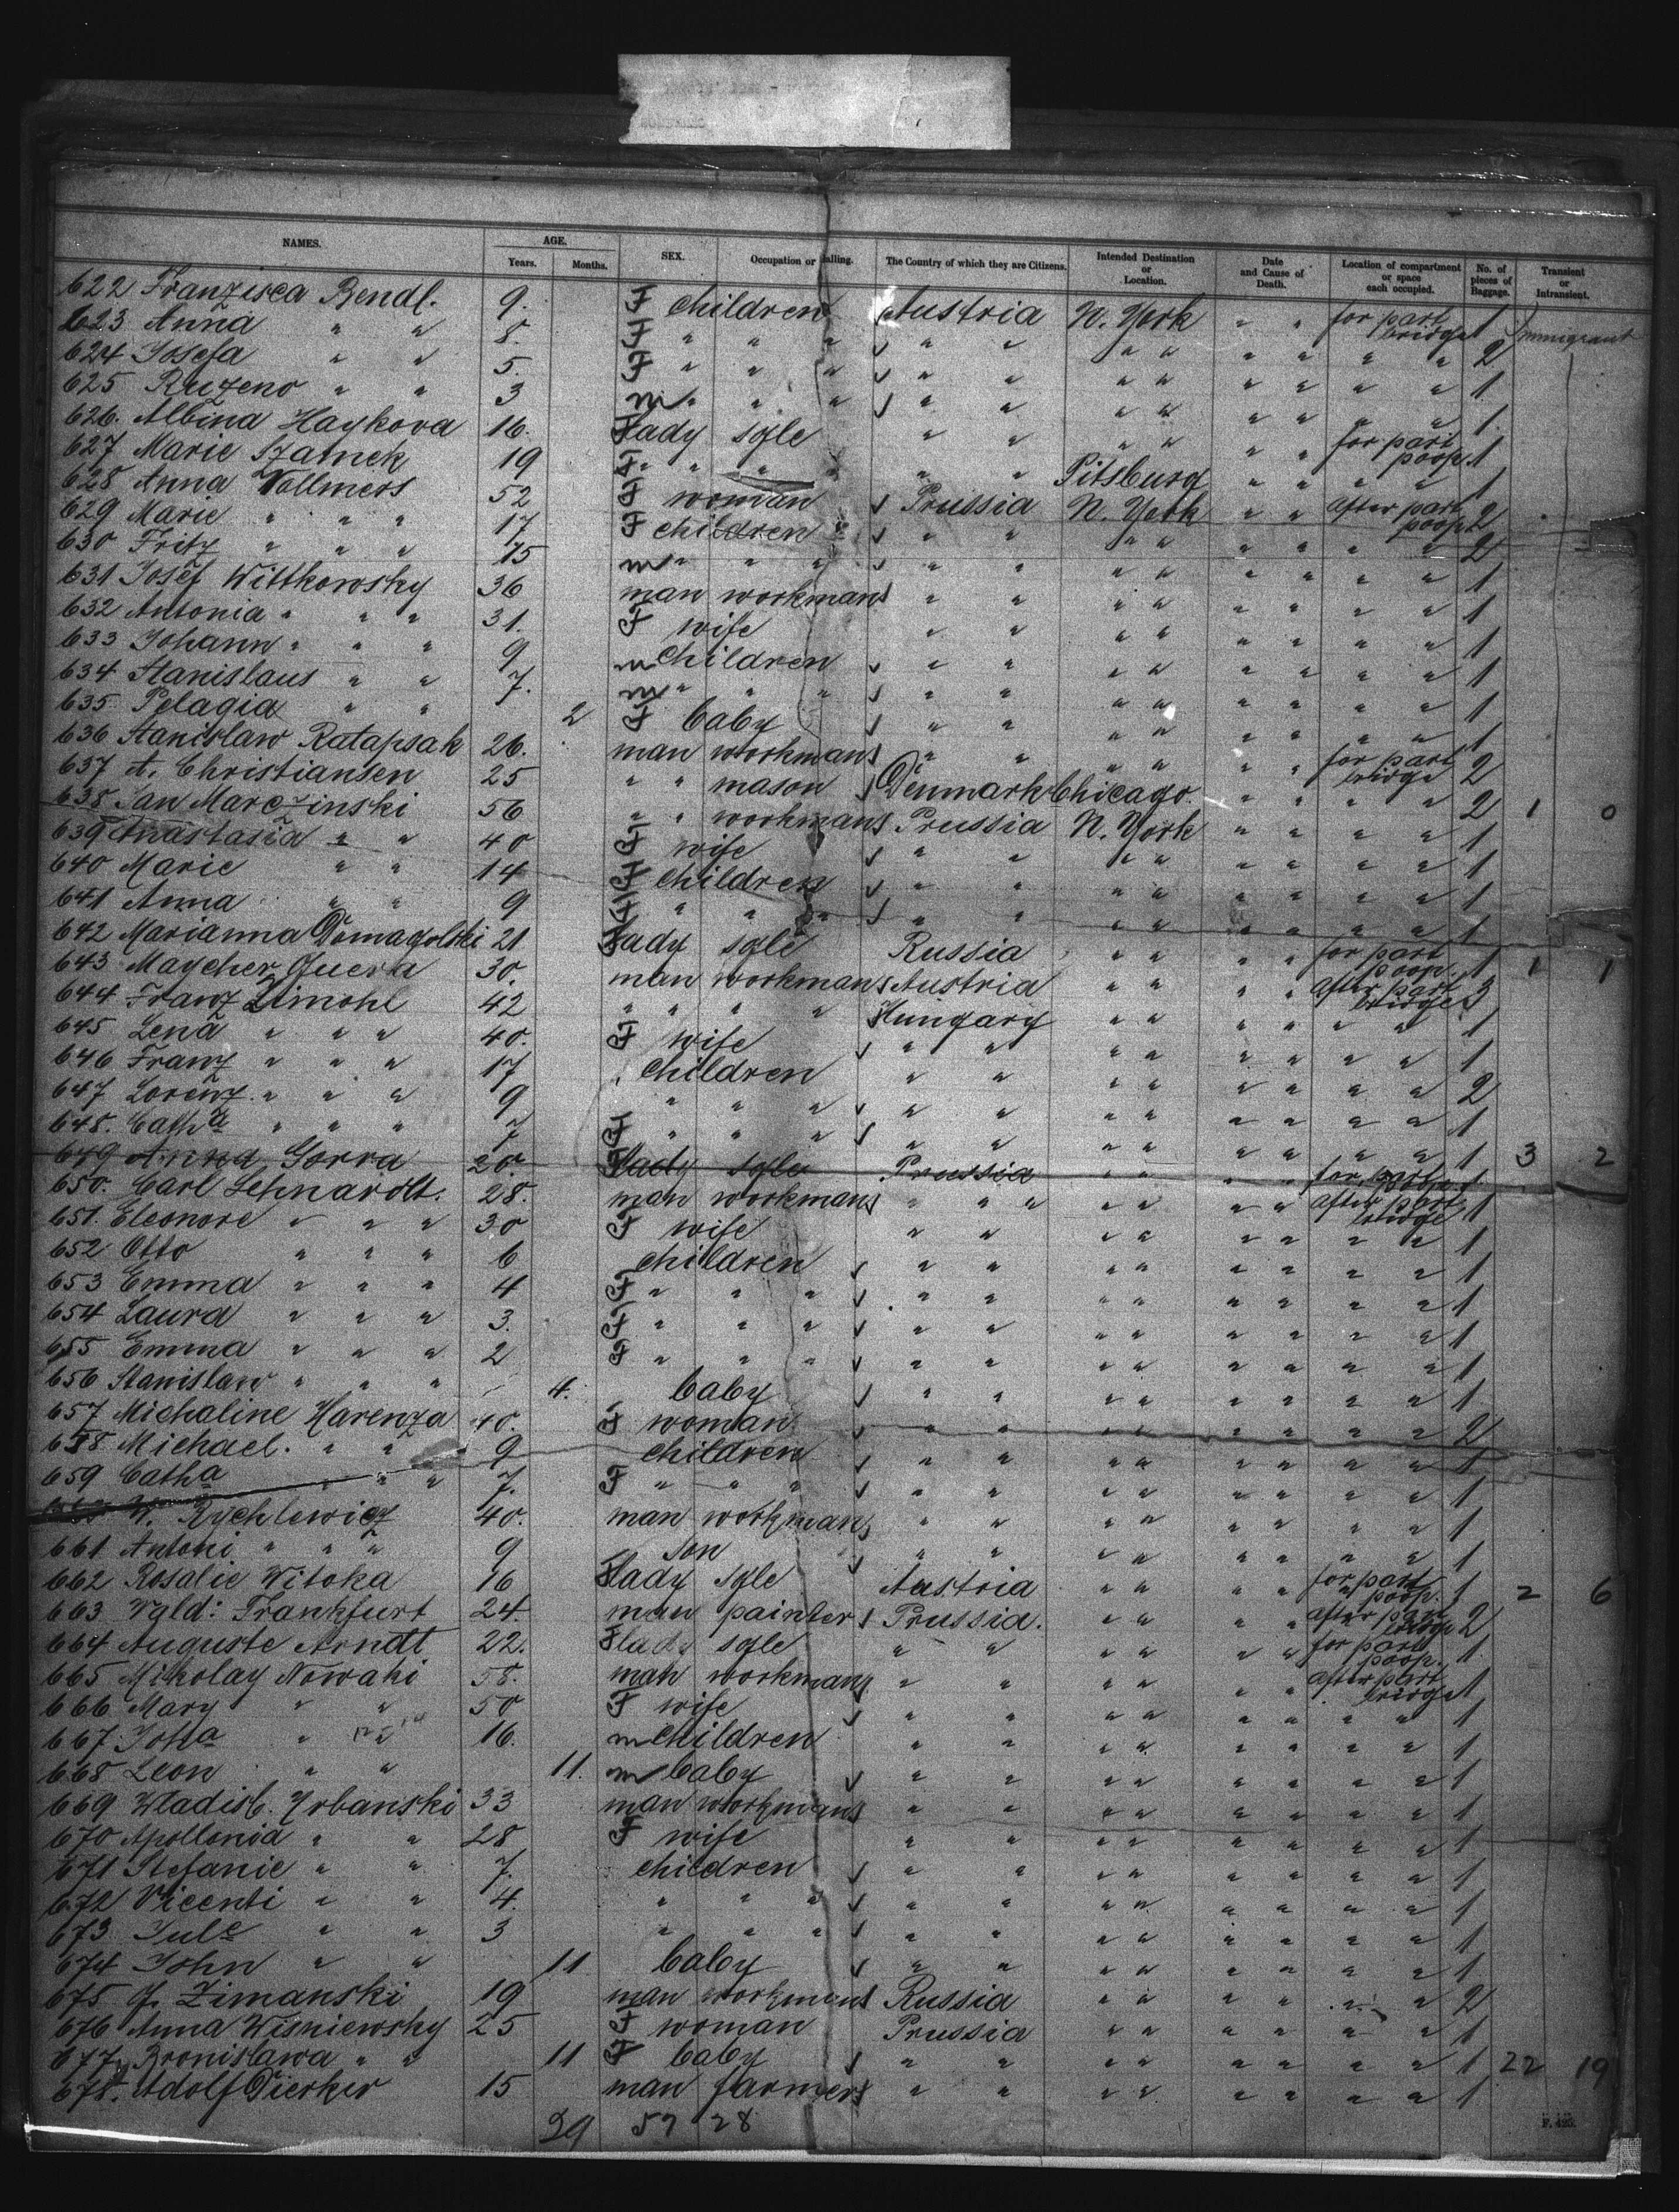 NAMES. AGE. SEX. Occupation or Calling. The Country of which they are Citizens. Intended Destination or Location. Date and Cause of Death. Location of compartment or space each occupied. No. of pieces of Baggage. Transient or Intransient.
Years. Months.
622 Franzisca Bendl. 9. F children Austria N. York " " for part bridge 1 Immigrant
623 Anna " " 8. F " " " " " " " " " " " 2
624 Josefa " " 5. F " " " " " " " " " " " 1
625 Ruzeno " " 3 m " " " " " " " " " " " 1
626. Albina Haykova 16. Flady sgle " " " " " " for part poop. 1
627 Marie Szatnek 19 F " " " " " Pitsburg " " " " 1
628 Anna Vollmers 52 F woman Prussia N. York " " after part poop 2
629 Marie " " " 17 F children " " " " " " " " 2
630 Fritz " " " 15 m " " " " " " " " " " " 1
631 Josef Wittkowsky 36 man workmans " " " " " " " " 1
632 Antonia " " " 31. F wife " " " " " " " " 1
633 Johann " " " 9 m children " " " " " " " " 1
634 Stanislaus " " 7. m " " " " " " " " " " " 1
635. Pelagia " " 2 F baby " " " " " " " " 1
636 Stanislaw Ratapsak 26. man workmans " " " " " " for part bridge 2
637 A. Christiansen 25 " " mason Denmark Chicago. " " " " 2 1 0
638 Jan Marczinski 56 " " workmans Prussia N. York " " " " 1
639 Anastasia " " 40 F wife " " " " " " " " 1
640 Marie " " 14 F children " " " " " " " " 1
641 Anna " " 9 F " " " " " " " " " " " 1
642 Marianna Domagolski 21 Flady sgle Russia " " " " for part poop. 1 1 1
643 Maycher Guera 30. man workmans Austria " " " " after part bridge 3
644 Franz Zimohl 42 " " " " Hungary " " " " " " 1
645 Lena " " " 40. F wife " " " " " " " " 1
646 Franz " " " 17 children " " " " " " " " 2
647 Lorenz " " " 9 " " " " " " " " " " " 1
648. Catha " " " 7 F " " " " " " " " " " " 1 3 2
649 Anna Gorra 20. Flady sgle Prussia " " " " for part 1
650. Carl Lehnardt. 28. man workmans " " " " " " " after part bridge 1
651. Eleonore " " " 30 F wife " " " " " " " " 1
652 Otto " " " 6 children " " " " " " " " 1
653 Emma " " " 4 F " " " " " " " " " " " 1
654 Laura " " " 3. F " " " " " " " " " " " 1
655 Emma " " " 2 F " " " " " " " " " " " 1
656 Stanislaw " " " 4. baby " " " " " " " " 1
657 Michaline Harenza 40. F woman " " " " " " " " 2
658 Michael. " " 9 children " " " " " " " " 1
659 Catha " " " 7. F " " " " " " " " " " " 1
W. Rychlewicz 40. man workmans " " " " " " " " 1
661 Antoni " " " 9 son " " " " " " " " 1
662 Rosalie Witoka 16 Flady sgle Austria " " " " for part poop. 1 2 6
663 Wald: Frankfurt 24. man painter Prussia. " " " " after part bridge 2
664 Auguste Arndt 22. Flady sgle " " " " " " for part poop. 1
665 Mikolay Nowaki 58. man workmans " " " " " " after part bridge 1
666 Mary " " 50 F wife " " " " " " " " 1
667. Joha " " 16. m children " " " " " " " " 1
668 Leon " " 11. m baby " " " " " " " " 1
669 Wladisl. Yrbanski 33 man workmans " " " " " " " " 1
670 Apollonia " " 28 F wife " " " " " " " " 1
671 Stefanie " " 7. children " " " " " " " " 1
672 Vicenti " " 4. " " " " " " " " " " " 1
673 Jule " " 3 " " " " " " " " " " " 1
674 John " " 11 baby " " " " " " " " 1
675 J. Zimanski 19 man workmans Russia " " " " " " 2
676 Anna Wisniewsky 25 F woman Prussia " " " " " " 1
677. Bronislawa " " 11 F baby " " " " " " " " 1 22 19
678. Adolf Dierker 15 man farmers " " " " " " " " 1
29 57 28
F. 425.